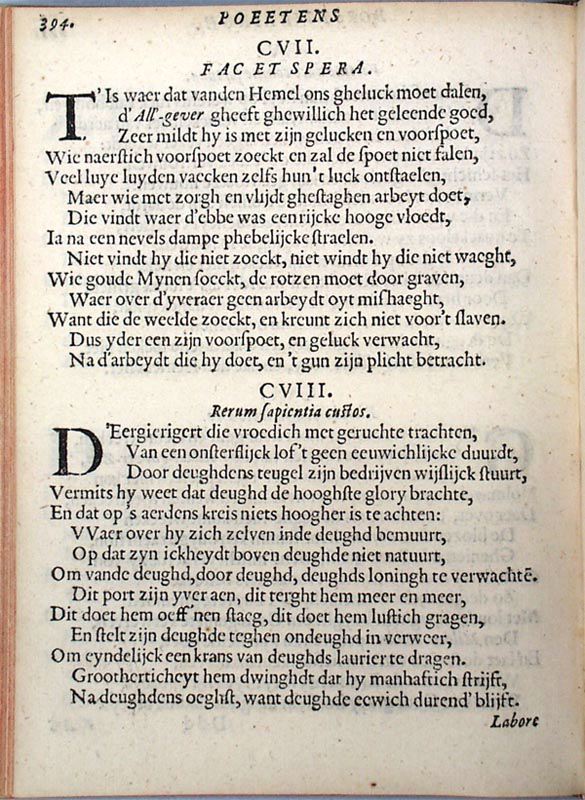 394.
POEETENS
CVII.
FAC ET SPERA.
T'Is waer dat vanden Hemel ons gheluck moet dalen,
d'All'-gever gheeft ghewillich het geleende goed,
Zeer mildt hy is met zijn gelucken en voorspoet,
Wie naerstich voorspoet zoeckt en zal de spoet niet falen,
Veel luye luyden vaecken zelfs hun't luck ontstaelen,
Maer wie met zorgh en vlijdt ghestaghen arbeyt doet,
Die vindt waer d'ebbe was een rijcke hooge vloedt,
Ia na een nevels dampe phebelijcke straelen.
Niet vindt hy die niet zoeckt, niet windt hy die niet waeght,
Wie goude Mynen soeckt, de rotzen moet door graven,
Waer over d'yveraer geen arbeydt oyt mishaeght,
Want die de weelde zoeckt, en kreunt zich niet voor't slaven.
Dus yder een zijn voorspoet, en geluck verwacht,
Na d'arbeydt die hy doet, en 't gun zijn plicht betracht.
CVIII.
Rerum sapientia custos.
D'Eergierigert die vroedich met geruchte trachten,
Van een onsterflijck lof't geen eeuwichlijcke duurdt,
Door deughdens teugel zijn bedrijven wijslijck stuurt,
Vermits hy weet dat deughd de hooghste glory brachte,
En dat op 's aerdens kreis niets hoogher is te achten:
VVaer over hy zich zelven inde deughd bemuurt,
Op dat zyn ickheydt boven deughde niet natuurt,
Om vande deughd, door deughd, deughds loningh te verwachtē.
Dit port zijn yver aen, dit terght hem meer en meer,
Dit doet hem oeff'nen staeg, dit doet hem lustich gragen,
En stelt zijn deughde teghen ondeughd in verweer,
Om eyndelijck een krans van deughds laurier te dragen.
Grootherticheyt hem dwinghdt dat hy manhaftich strijft,
Na deughdens oeghst, want deughde eewich durend' blijft.
Labore